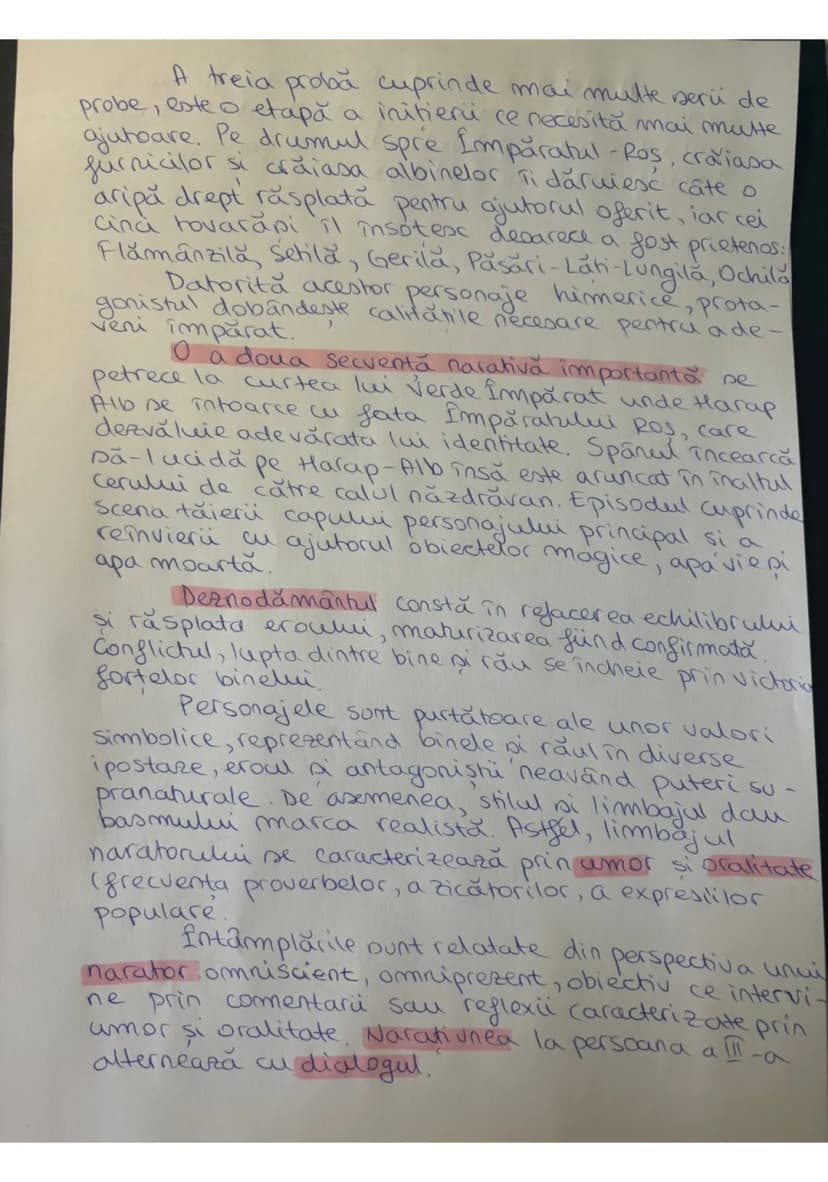 A treia probă cuprinde mai multe serii de
probe, este o etapă a inițierii ce necesită mai multe
ajutoare. Pe drumul spre Împăratul-Roș, crăiasa
furnicilor și crăiasa albinelor îi dăruiesc câte o
aripă drept răsplată pentru ajutorul oferit, iar cei
cinci tovarăși îl însoțesc deoarece a fost prietenos:
Flămânzilă, Setilă, Gerilă, Păsări-Lăți-Lungilă, Ochilă
Datorită acestor personaje himerice, prota-
gonistul dobândește calitățile necesare pentru a de-
veni împărat.
O a doua secvență narativă importantă se
petrece la curtea lui Verde Împărat unde Harap
Alb se întoarce cu fata Împăratului Roș, care
dezvăluie adevărata lui identitate. Spânul încearcă
să-l ucidă pe Harap-Alb însă este aruncat în înaltul
cerului de către calul năzdrăvan. Episodul cuprinde
scena tăierii capului personajului principal și a
reînvierii cu ajutorul obiectelor magice, apa vie și
apa moartă.
Deznodământul constă în refacerea echilibrului
și răsplata eroului, maturizarea fiind confirmată.
Conflictul, lupta dintre bine și rău se încheie prin victoria
forțelor binelui.
Personajele sunt purtătoare ale unor valori
simbolice, reprezentând binele și răul în diverse
ipostaze, eroul și antagoniștii neavând puteri su-
pranaturale. De asemenea, stilul și limbajul dau
basmului marca realistă. Astfel, limbajul
naratorului se caracterizează prin umor și oralitate
(frecvența proverbelor, a zicătorilor, a expresiilor
populare.
Întâmplările sunt relatate din perspectiva unui
narator omniscient, omniprezent, obiectiv ce intervi-
ne prin comentarii sau reflexii caracterizate prin
umor și oralitate. Narațiunea la persoana a III-a
alternează cu dialogul.